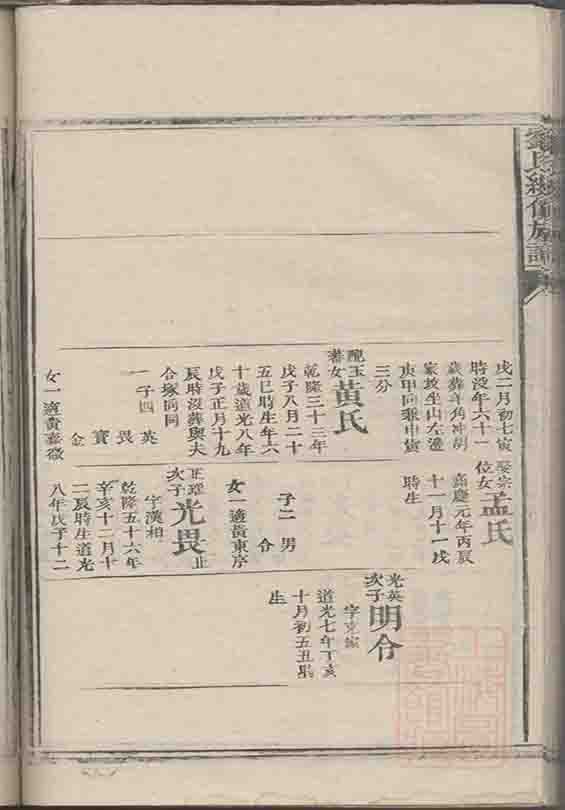 戌二月初七寅
時没年六十一
歲葬羊角冲胡
家坡坐山左邊
庚甲同兼申寅
三分
配玉
蕃女
黃氏
乾隆三十三年
戊子八月二十
五巳時生年六
十歲道光八年
戊子正月十九
辰時没葬與夫
合塚向同
一子四
英
畏
實
金
女一適黃臺徵
娶宗
位女
孟氏
嘉慶元年丙辰
十一月十一戌
時生
子二
男
令
女一適黃東序
正瑆
次子
光畏
字漢相
乾隆五十六年
辛亥十二月十
二辰時生道光
八年戊子十二
光英
次子
明令
字克家
道光七年丁亥
十月初五丑時
生